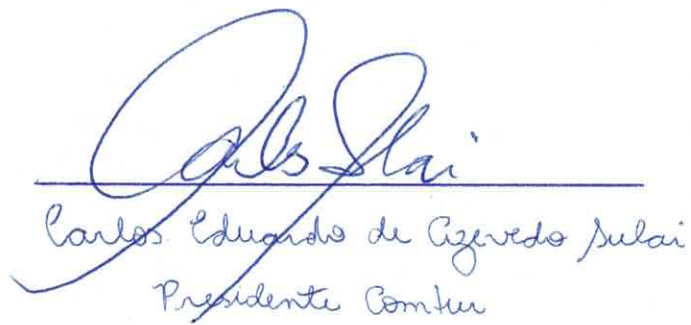 Carlos Sulai
Carlos Eduardo de Azevedo Sulai
Presidente Comtur